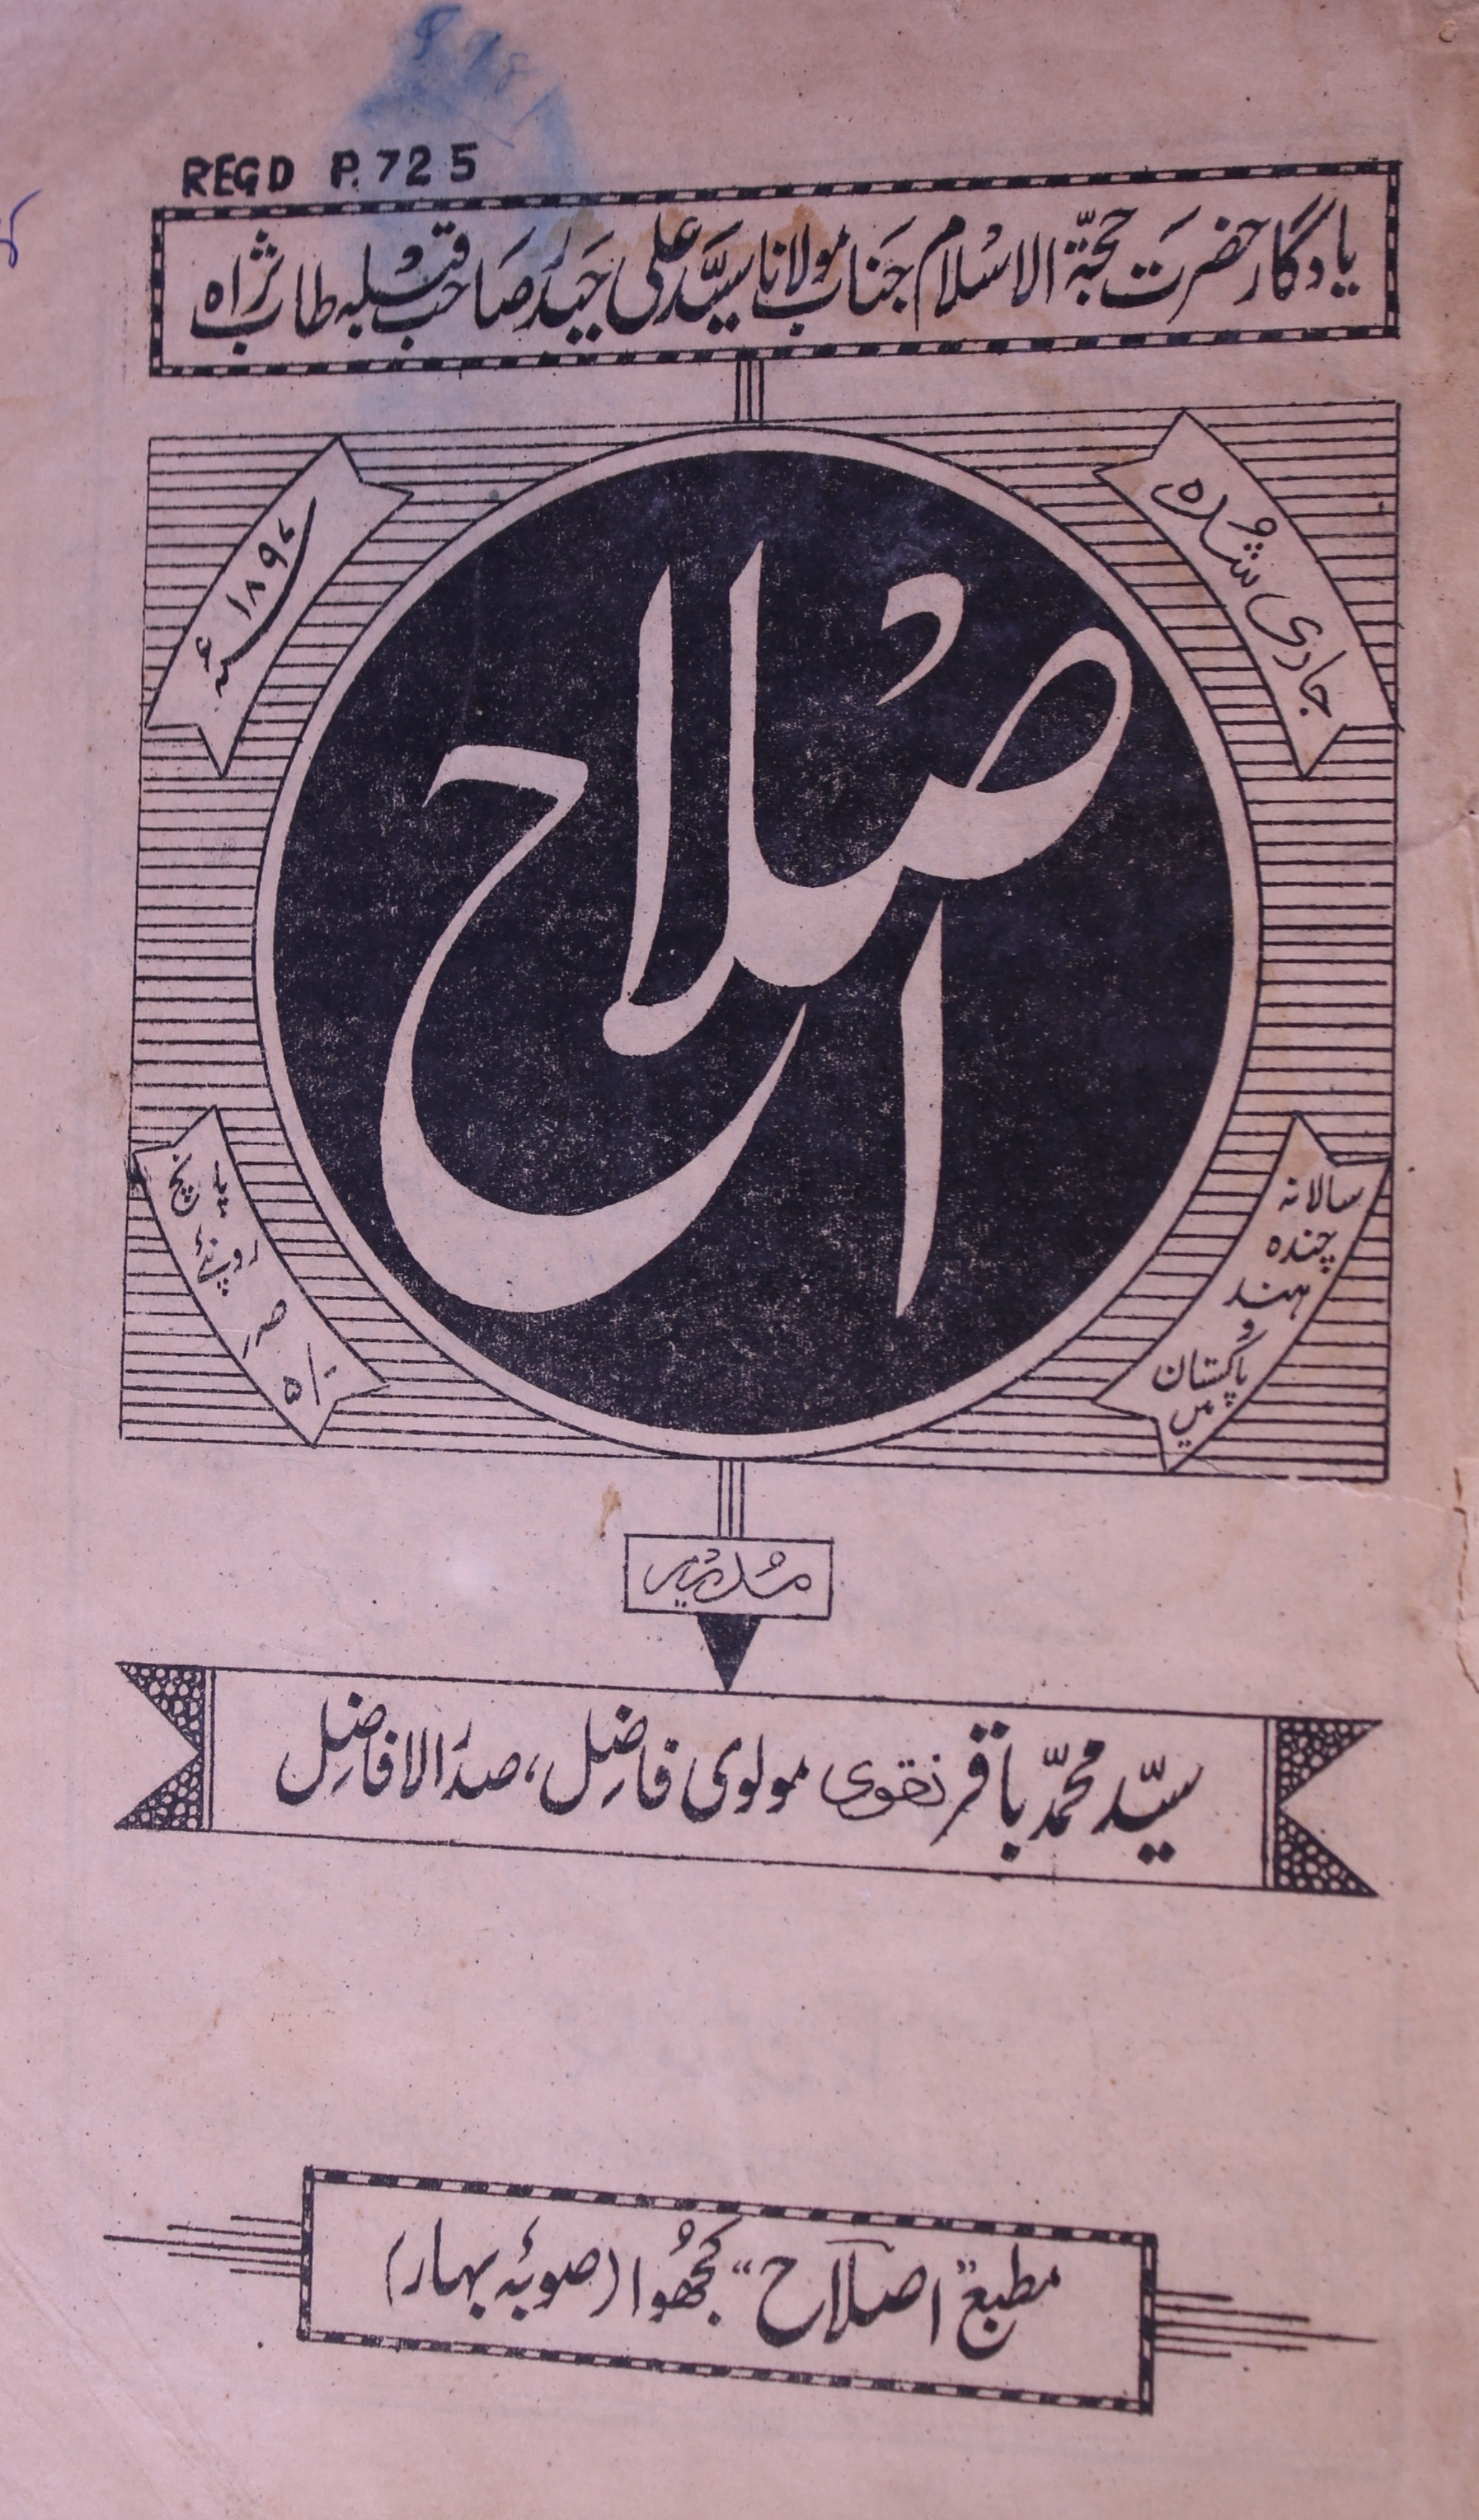 REGD P.725
یادگار حضرت حجۃ الاسلام جناب مولانا سید علی حیدر صاحب قبلہ طاب ثراہ
جاری شدہ
۱۸۹۴ء
اصلاح
سالانہ
چندہ
ہند
و
پاکستان
میں
پانچ
روپئے
صہر
۵/-
مدیر
سیّد محمّد باقر نقوی مولوی فاضل، صدر الافاضل
مطبع "اصلاح" کجھوا (صوبۂ بہار)